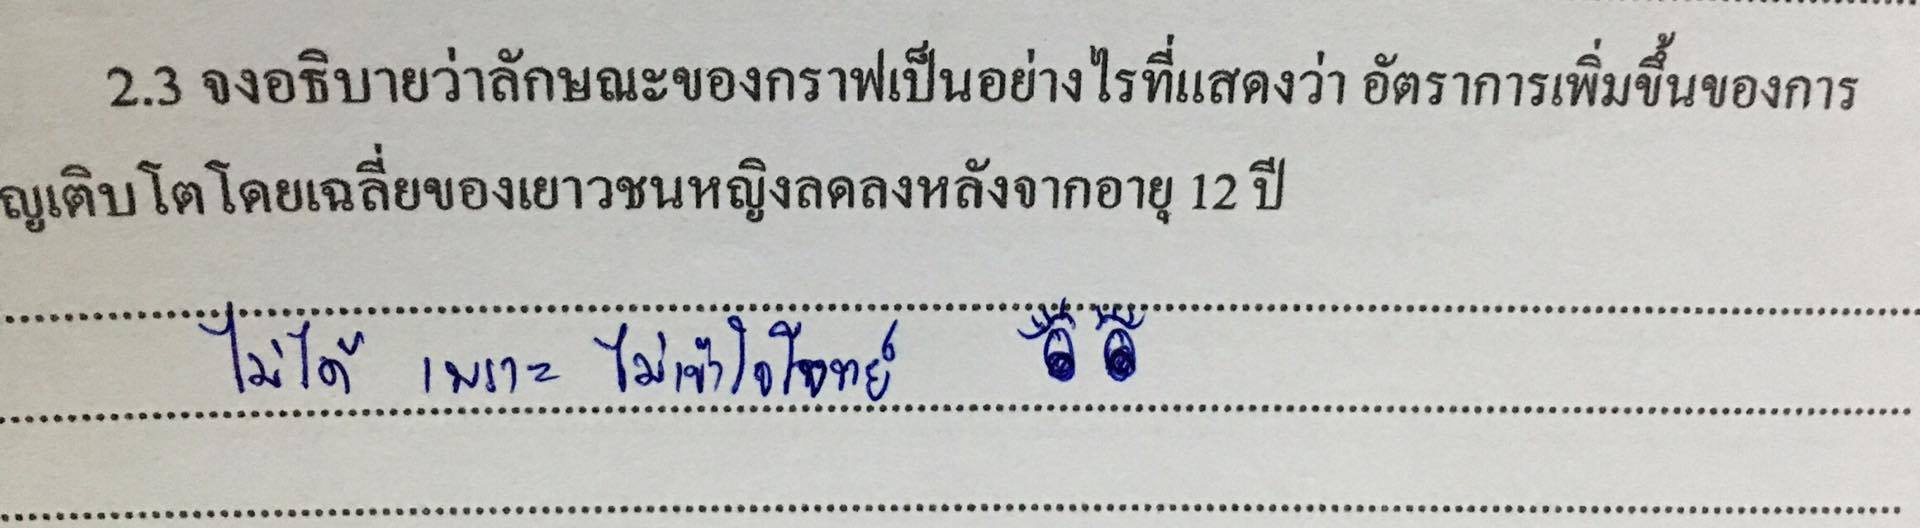 2.3 จงอธิบายว่าลักษณะของกราฟเป็นอย่างไรที่แสดงว่า อัตราการเพิ่มขึ้นของการ
ญเติบโตโดยเฉลี่ยของเยาวชนหญิงลดลงหลังจากอายุ 12 ปี
ไม่ได้ เพราะ ไม่เข้าใจโจทย์